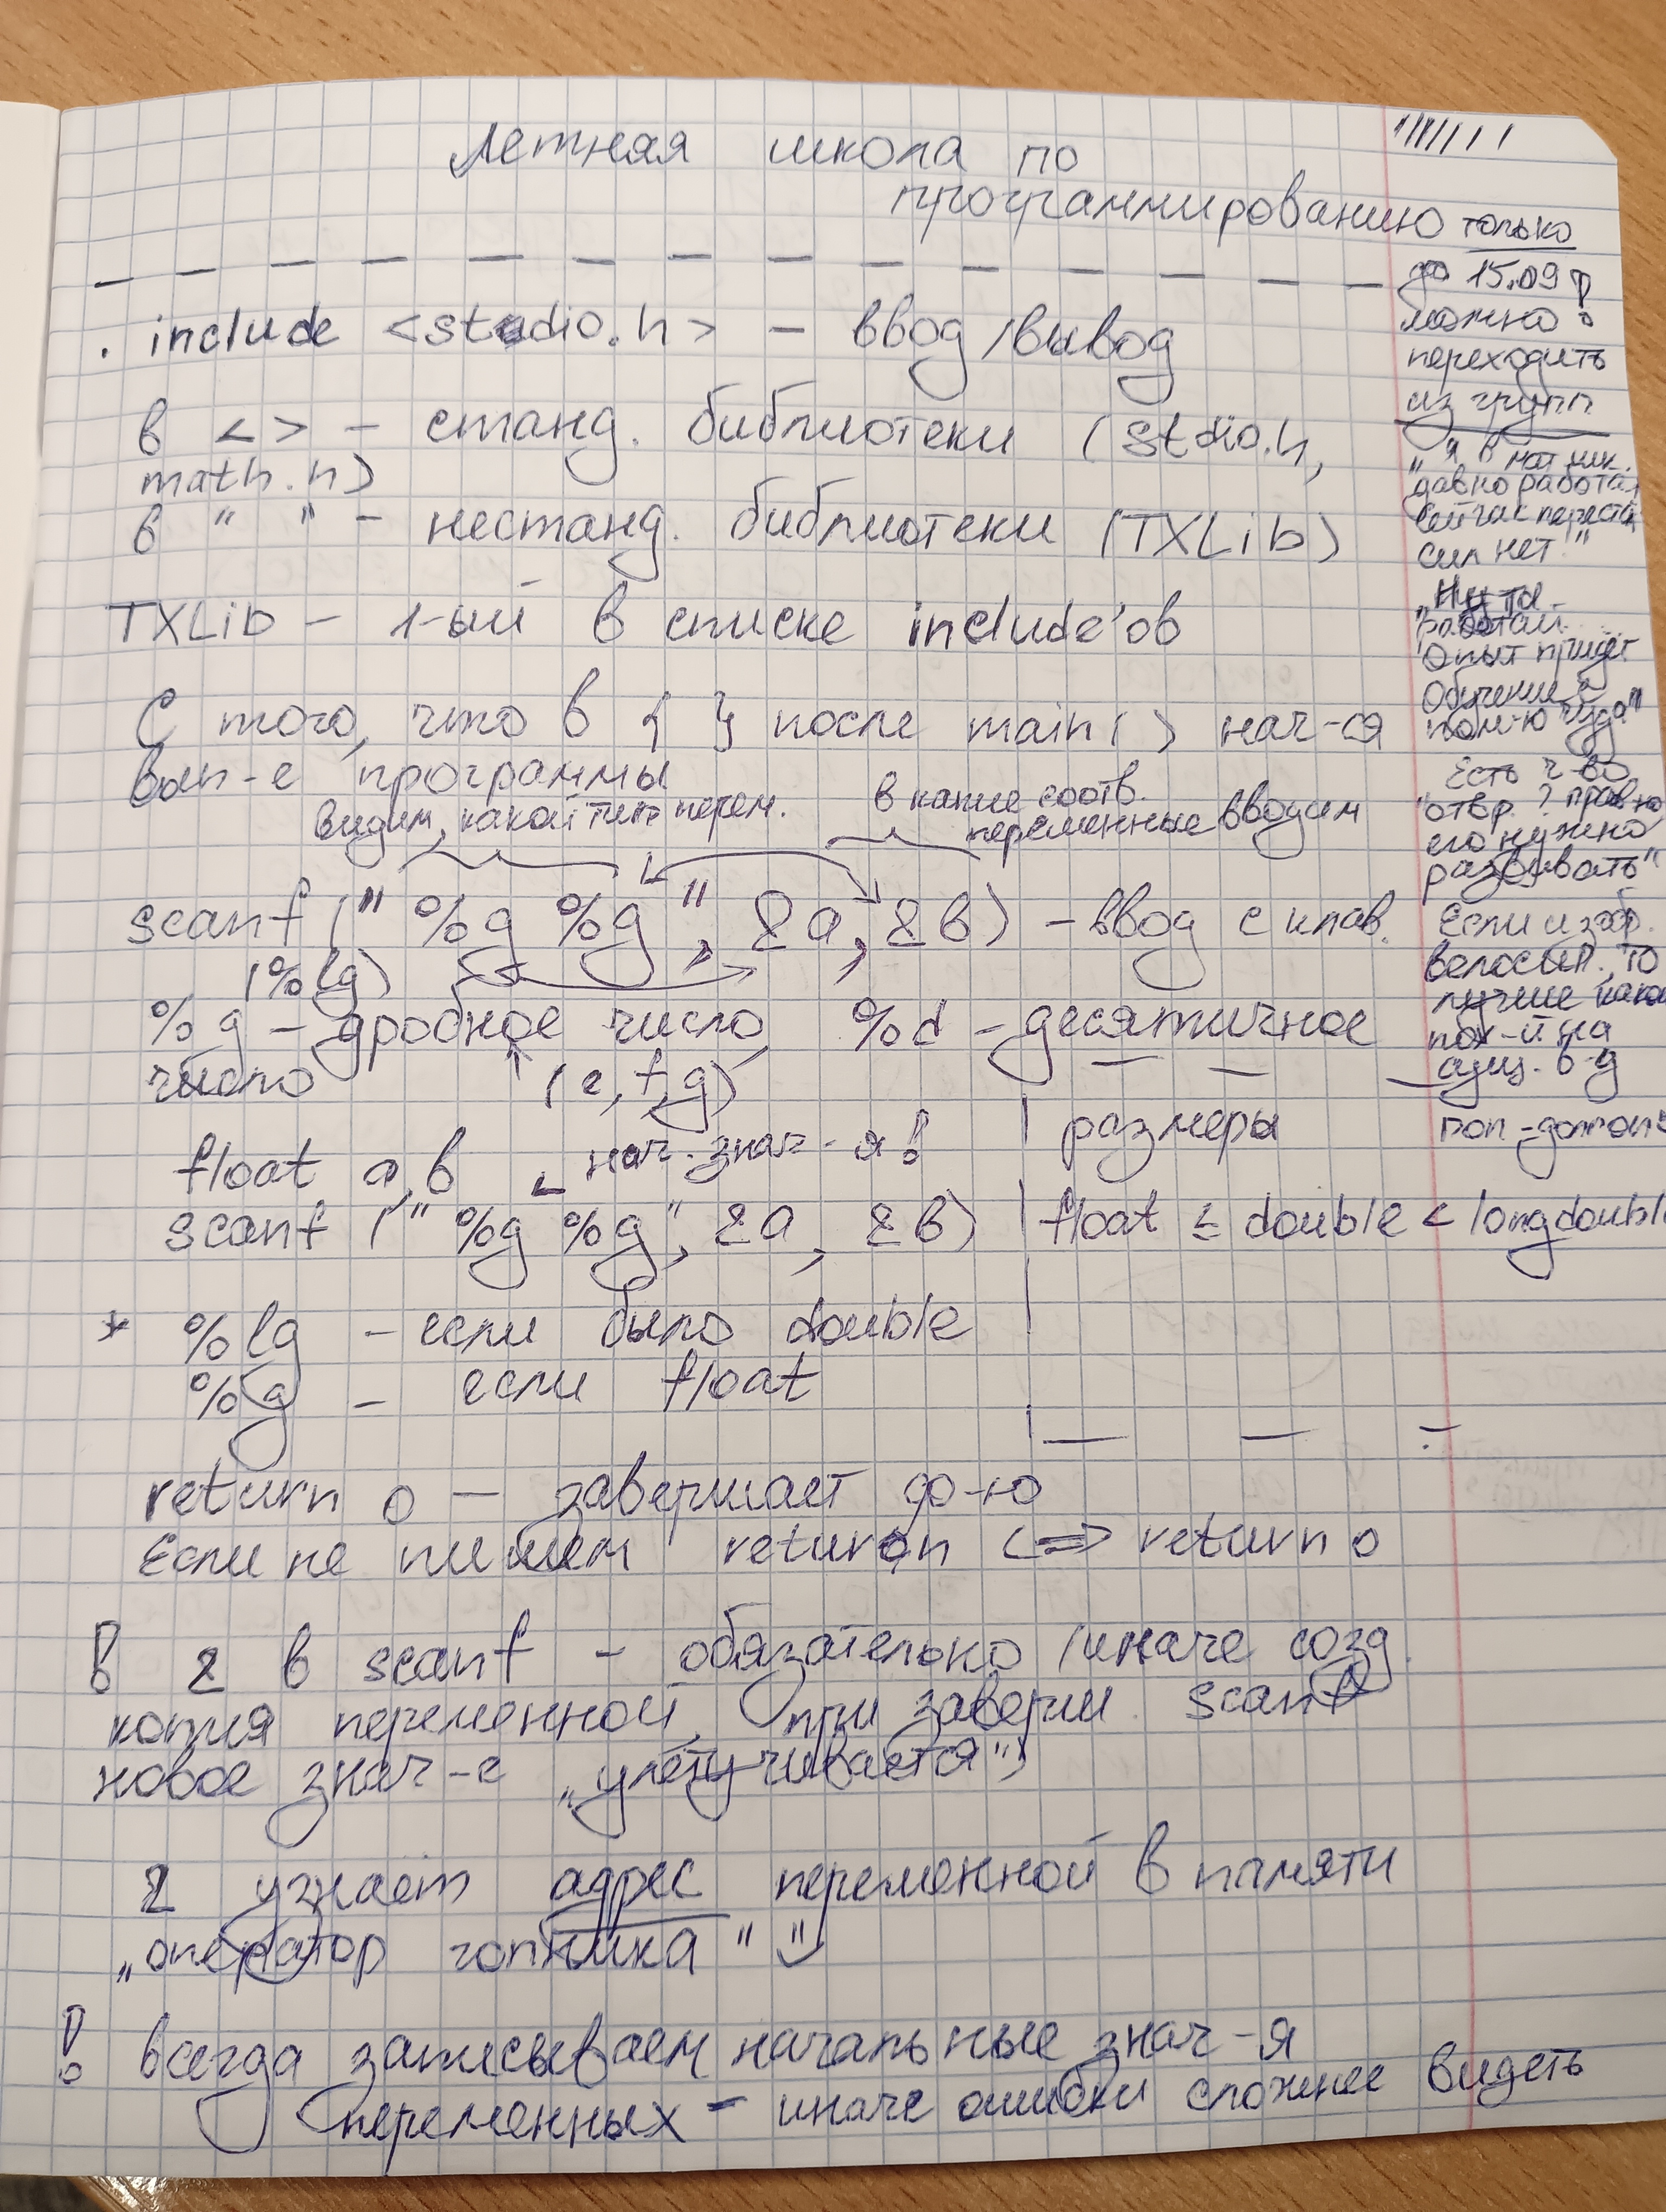 Летняя школа по
программированию
. include <stdio.h> – ввод/вывод
в < > – станд. библиотеки (stdio.h,
math.h)
в “ ” – нестанд. библиотеки (TXLib)
TXLib – 1-ый в списке include'ов
С того, что в { } после main( ) нач-ся
вып-е программы
видим, какой тип перем.
в какие соотв.
переменные вводим
scanf (" %g %g ", &a, &b) – ввод с клав.
(%lg)
%g – дробное число, %d – десятичное
число (e, f, g)
float a, b нач. знач-я!
scanf (" %g %g", &a, &b)
* %lg – если было double
%g – если float
размеры
float ≤ double < long double
return 0 – завершает ф-ю
Если не пишем return <=> return 0
! & в scanf – обязательно (иначе созд.
копия переменной, при заверш. scanf
новое знач-е „улетучивается")
& узнает адрес переменной в памяти
„оператор гопника"
! всегда записываем начальные знач-я
переменных – иначе ошибки сложнее видеть
только
до 15.09 !
можно
переходить
из групп
„Я в мат ник.
давно работа
сейчас переста
сил нет."
„Ну ты
работай
Опыт придёт
Обучение
"Есть ч-во
отв. ? прав-но
его нужно
развивать"
Если изоб.
велосип., то
лучше
пох-й на
сущ. в-д